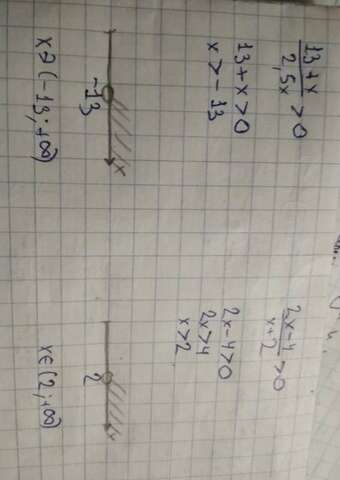 13+x / 2,5x > 0
13+x>0
x>-13
-13 x
x > (-13; +∞)
2x-4 / x+2 > 0
2x-4>0
2x>4
x>2
2
x∈(2; +∞)